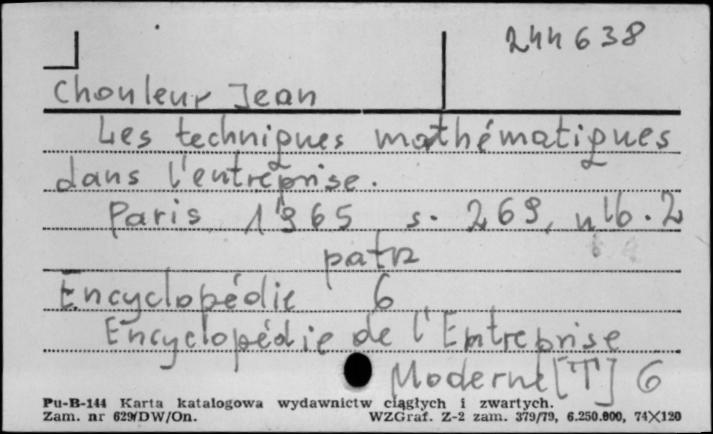 244638
Chouleur Jean
Les techniques mathématiques
dans l'entreprise.
Paris 1965 s. 269, nlb. 2
patrz
Encyclopédie 6
Encyclopédie de l'Entreprise
Moderne [T] 6
Pu-B-144 Karta katalogowa wydawnictw ciągłych i zwartych.
Zam. nr 629/DW/On. WZGraf. Z-2 zam. 379/79, 6.250.000, 74×120